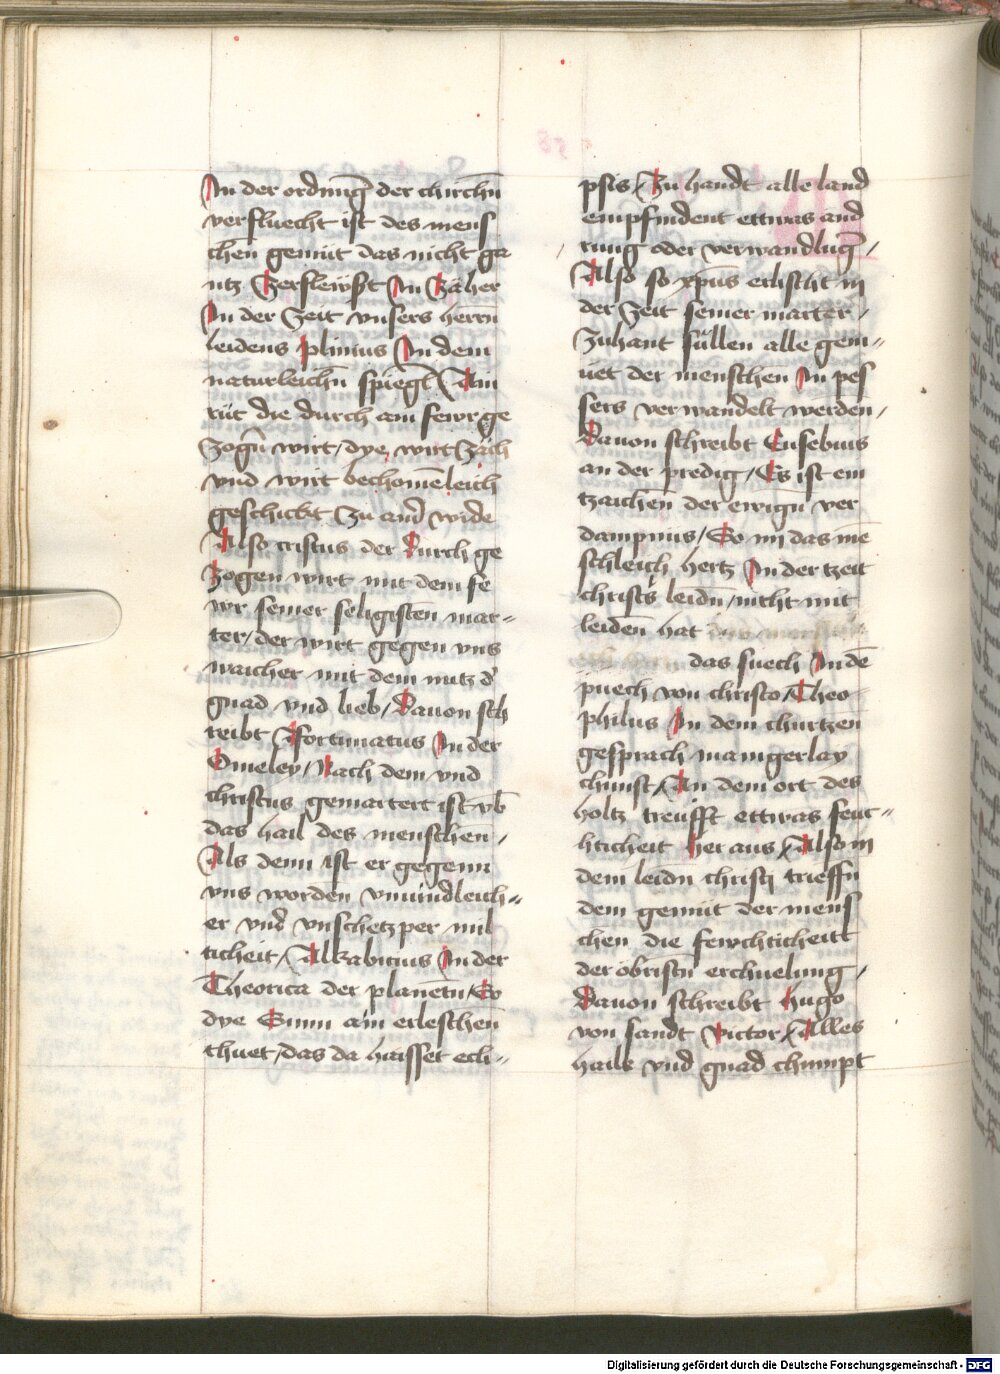 In der ordnūg der chirchñ
verfluecht ist des mens
chen gemüt das nicht ga
ntz Zerflewst In Zäher
In der Zeit vnsers herrñ
leidens plinius In dem
naturleichñ spiegl / Ain
rüt die durch ain fewr ge
Zogñ wirt / dye wirt Zäch
vnd wirt bechomēleich
geschickt Zu and wide
Also cristus der durch ge
Zogen wirt mit dem fe
wr seiner seligisten mar-
ter / der wirt gegen vns
waicher mit dem nutz d
gnad vnd lieb / Dauon sch
reibt ffortunatus In der
Omeley / Nach dem vnd
christus gemartert ist vb
das hail des menschen /
Als denn ist er gegenn
vns worden vnuindleich-
er vnd vnschetzper mil
ticheit / Alkabicius In der
Theorica der planetñ / So
dye Sunn ain erleschen
thuet / das da haisset ecli-
psis / Zu handt alle land
empfindent ettwas and
rung oder verwandlūg /
Also so xpūs erlischt in
der Zeit seiner marter /
Zuhant süllen alle gem-
üet der menschen In pes
sers verwandelt werden /
Dauon schreibt Eusebius
an der predig / Es ist ein
tzaichen der ewigñ ver
dampnus / So im das mē
schleich hertz In der tzeit
christs leidñ / nicht mit
leiden hat
das suech In dē
puech von christo / Theo
philus In dem churtzen
gesprach manigerlay
chunst / An dem ort des
holtz treüfft ettwas feuc-
hticheit her aus / Also in
dem leidñ christi trieffñ
dem gemüt der mens
chen die fewchticheitt
der obristñ erchuelung /
Dauon schreibt hugo
von sandt victor / Alles
hails vnd gnad chumpt
Digitalisierung gefördert durch die Deutsche Forschungsgemeinschaft - DFG